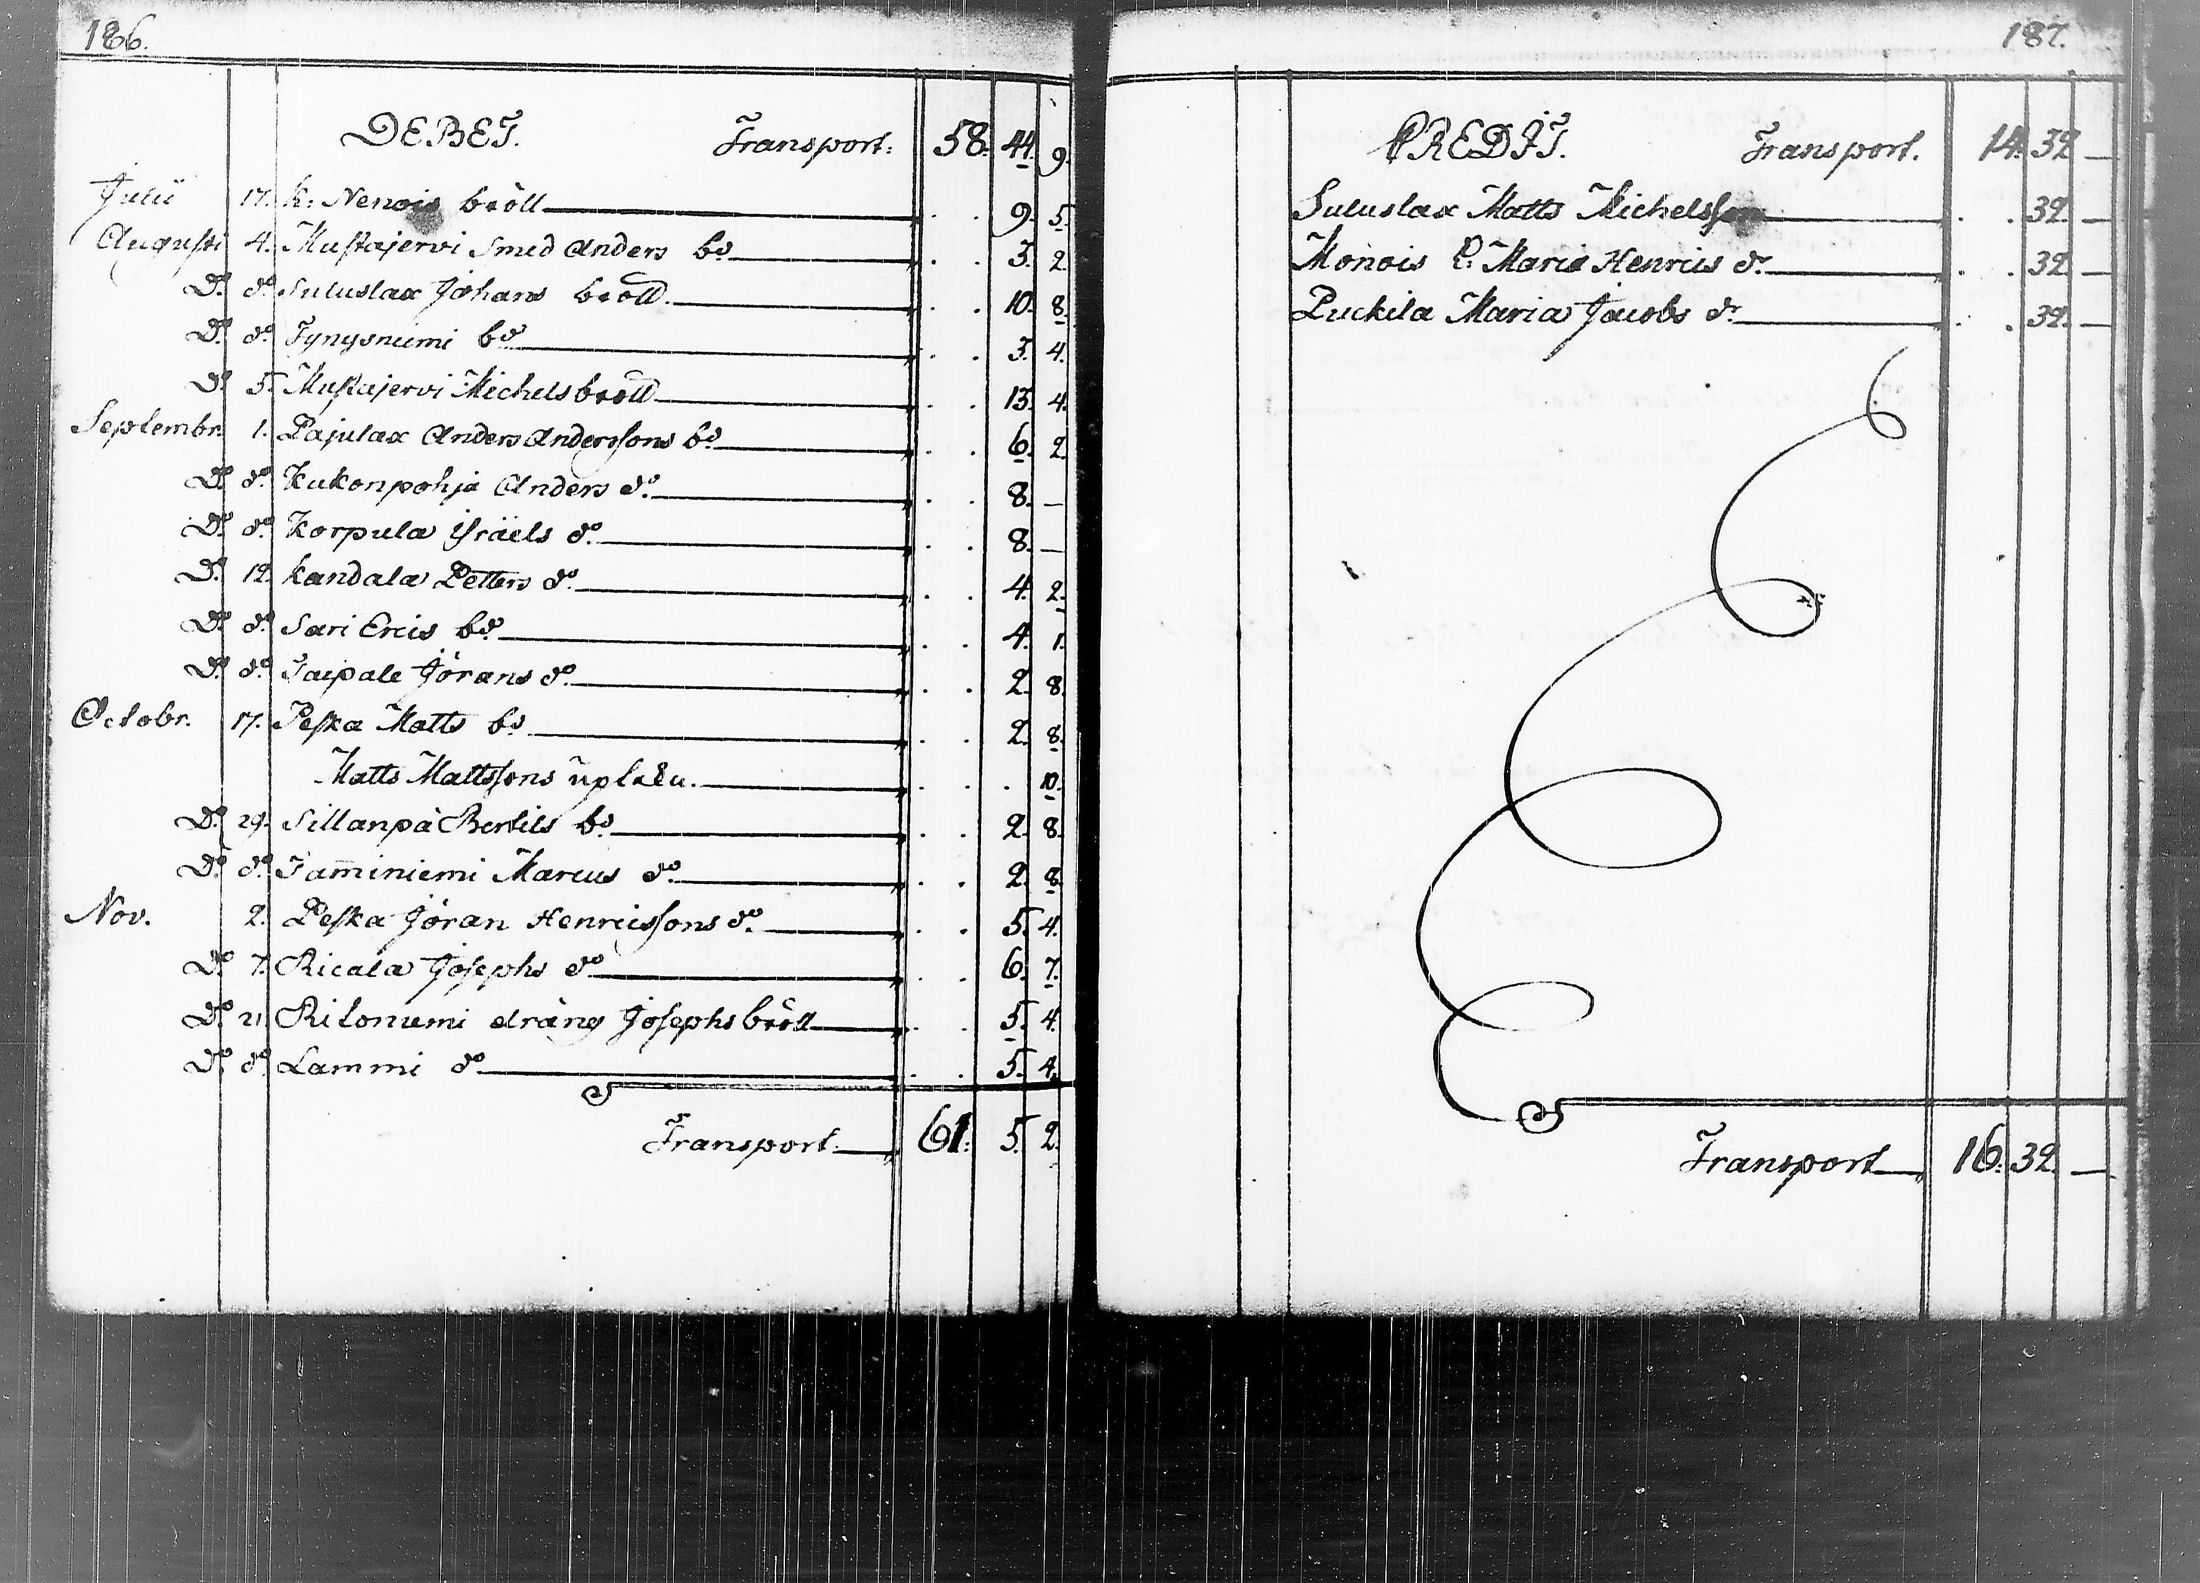 186.
DEBET. Transport: 58. 44. 9.
Julii 17. K: Nenois bröll . . 9. 5.
Augusti 4. Mustajervi Smed Anders bd . . 3. 2.
Do. do. Suluslax Johans bröll. . . 10. 8.
Do. do. Tynysniemi bd . . 3. 4.
Do. 5. Mustajervi Michels bröll . . 13. 4.
Septembr. 1. Pajulax Anders Anderssons bd . . 6. 2.
Do. do. Kukonpohja Anders do. . . 8. —
Do. do. Korpula Israels do. . . 8. —
Do. 12. Kandala Petters do. . . 4. 2.
Do. do. Sari Ercis bd. . . 4. 1.
Do. do. Taipale Jörans do. . . 2. 8.
Octobr. 17. Peska Matts bd . . 2. 8.
Matts Mattssons . . . 10.
Do. 29. Sillanpä Bertils bd . . 2. 8.
Do. do. Taminiemi Marcus do. . . 2. 8.
Nov. 2. Peska Jöran Henricssons do. . . 5. 4.
Do. 7. Ricala Josephs do . . 6. 7.
Do. 21. Ritoniemi dräng Josephs bröll . . 5. 4.
Do. do. Lammi do . . 5. 4.
Transport. 61. 5. 2.
187.
CREDIT. Transport. 14. 32. —
Suluslax Matts Michelsson . . 32. —
Monois E: Maria Henrics dr. . . 32. —
Puckila Maria Jacobs dr. . . 32. —
Transport 16. 32. —